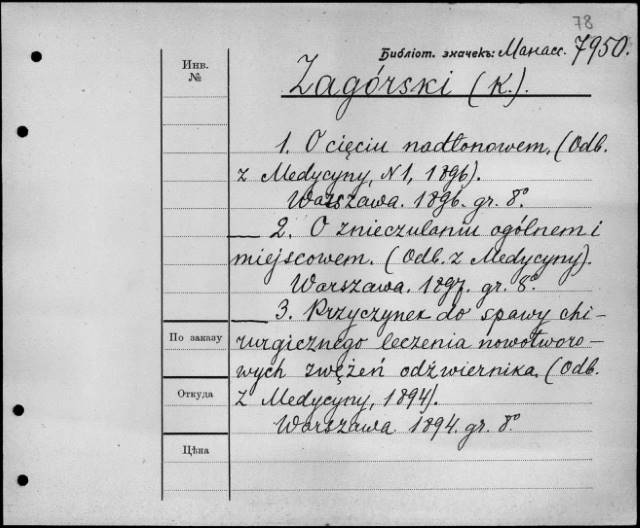 78
Библіот. значекъ: Манасс. 7950.
Инв.
№
Zagórski (K.).
1. O cięciu nadłonowem. (Odb.
z Medycyny, N1, 1896).
Warszawa. 1896. gr. 8°
2. O znieczulaniu ogólnem i
miejscowem. (Odb. z Medycyny).
Warszawa. 1897. gr. 8°
3. Przyczynek do spawy chi-
rurgicznego leczenia nowotworo-
wych zwężeń odźwiernika. (Odb.
z Medycyny, 1894).
Warszawa 1894. gr. 8°
По заказу
Откуда
Цѣна